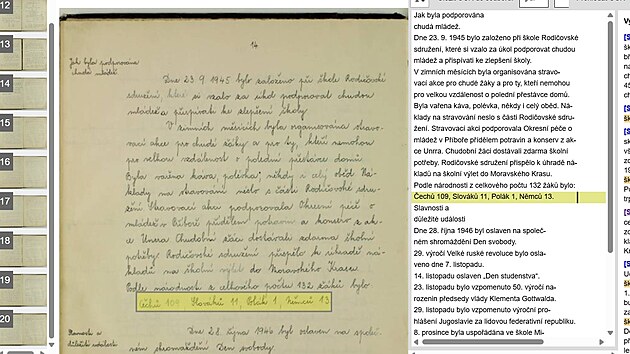 12
13
14
15
16
17
18
19
20
14
Jak byla podporována
chudá mládež.
Dne 23. 9. 1945 bylo založeno při škole Rodičovské
sdružení, které si vzalo za úkol podporovat chudou
mládež a přispívati ke zlepšení školy.
V zimních měsících byla organisována stravo-
vací akce pro chudé žáky a pro ty, kteří nemohou
pro velkou vzdálenost o polední přestávce domů.
Byla vařena káva, polévka, někdy i celý oběd. Ná-
klady na stravování neslo s části Rodičovské sdru-
žení. Stravovací akci podporovala Okresní péče o
mládež v Příboře přídělem potravin a konserv z ak-
ce Unrra. Chudobní žáci dostávali zdarma školní
potřeby. Rodičovské sdružení přispělo k úhradě ná-
kladů na školní výlet do Moravského Krasu.
Podle národnosti z celkového počtu 132 žáků bylo
Čechů 109, Slováků 11, Polák 1, Němců 13.
Slavnosti a
důležité události
Dne 28. října 1946 byl oslaven na společ-
ném shromáždění Den svobody.
Jak byla podporována
chudá mládež.
Dne 23. 9. 1945 bylo založeno při škole Rodičovské
sdružení, které si vzalo za úkol podporovat chudou
mládež a přispívati ke zlepšení školy.
V zimních měsících byla organisována stravo-
vací akce pro chudé žáky a pro ty, kteří nemohou
pro velkou vzdálenost o polední přestávce domů.
Byla vařena káva, polévka, někdy i celý oběd. Ná-
klady na stravování neslo s části Rodičovské sdru-
žení. Stravovací akci podporovala Okresní péče o
mládež v Příboře přídělem potravin a konserv z ak-
ce Unrra. Chudobní žáci dostávali zdarma školní
potřeby. Rodičovské sdružení přispělo k úhradě ná-
kladů na školní výlet do Moravského Krasu.
Podle národnosti z celkového počtu 132 žáků bylo:
Čechů 109, Slováků 11, Polák 1, Němců 13.
Slavnosti a
důležité události
Dne 28. října 1946 byl oslaven na společ-
ném shromáždění Den svobody.
29. výročí Velké ruské revoluce bylo osla-
veno dne 7. listopadu.
14. listopadu oslaven „Den studenstva“.
23. listopadu bylo vzpomenuto 50. výročí na-
rozenin předsedy vlády Klementa Gottwalda.
29. listopadu bylo vzpomenuto výročí pro-
hlášení Jugoslavie za lidovou federativní republiku.
8. prosince byla uspořádána ve škole Mi-